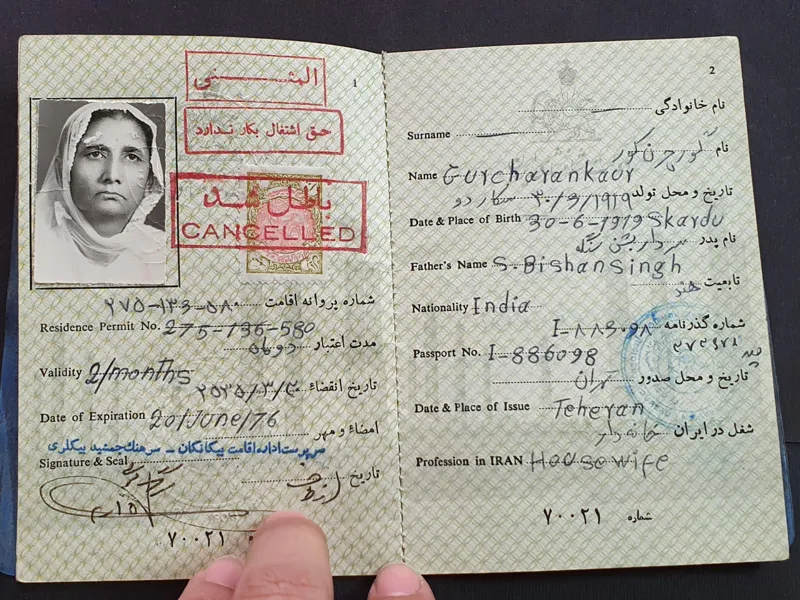 المثنی
1
حق اشتغال بکار ندارد
باطل شد
CANCELLED
شماره پروانه اقامت ۲۷۵-۱۳۶-۵۸۰
Residence Permit No. 275-136-580
مدت اعتبار
Validity 2/months
تاریخ انقضاء ۲۵۳۵/۳/۳۰
Date of Expiration 20/June/76
امضاء و مهر
سرپرست اداره اقامت بیگانگان - سرهنگ جمشید بیگلری
Signature & Seal
تاریخ
۷۰۰۲۱
2
نام خانوادگی
Surname
نام
Name Gurcharankaur
تاریخ و محل تولد ۳۰/۶/۱۹۱۹ سکاردو
Date & Place of Birth 30-6-1919 Skardu
نام پدر
Father's Name S. Bishansingh
تابعیت هند
Nationality India
شماره گذرنامه I-۸۸۶۰۹۸
Passport No. I-886098
تاریخ و محل صدور تهران
Date & Place of Issue Teheran
شغل در ایران خانه دار
Profession in IRAN Housewife
شماره ۷۰۰۲۱